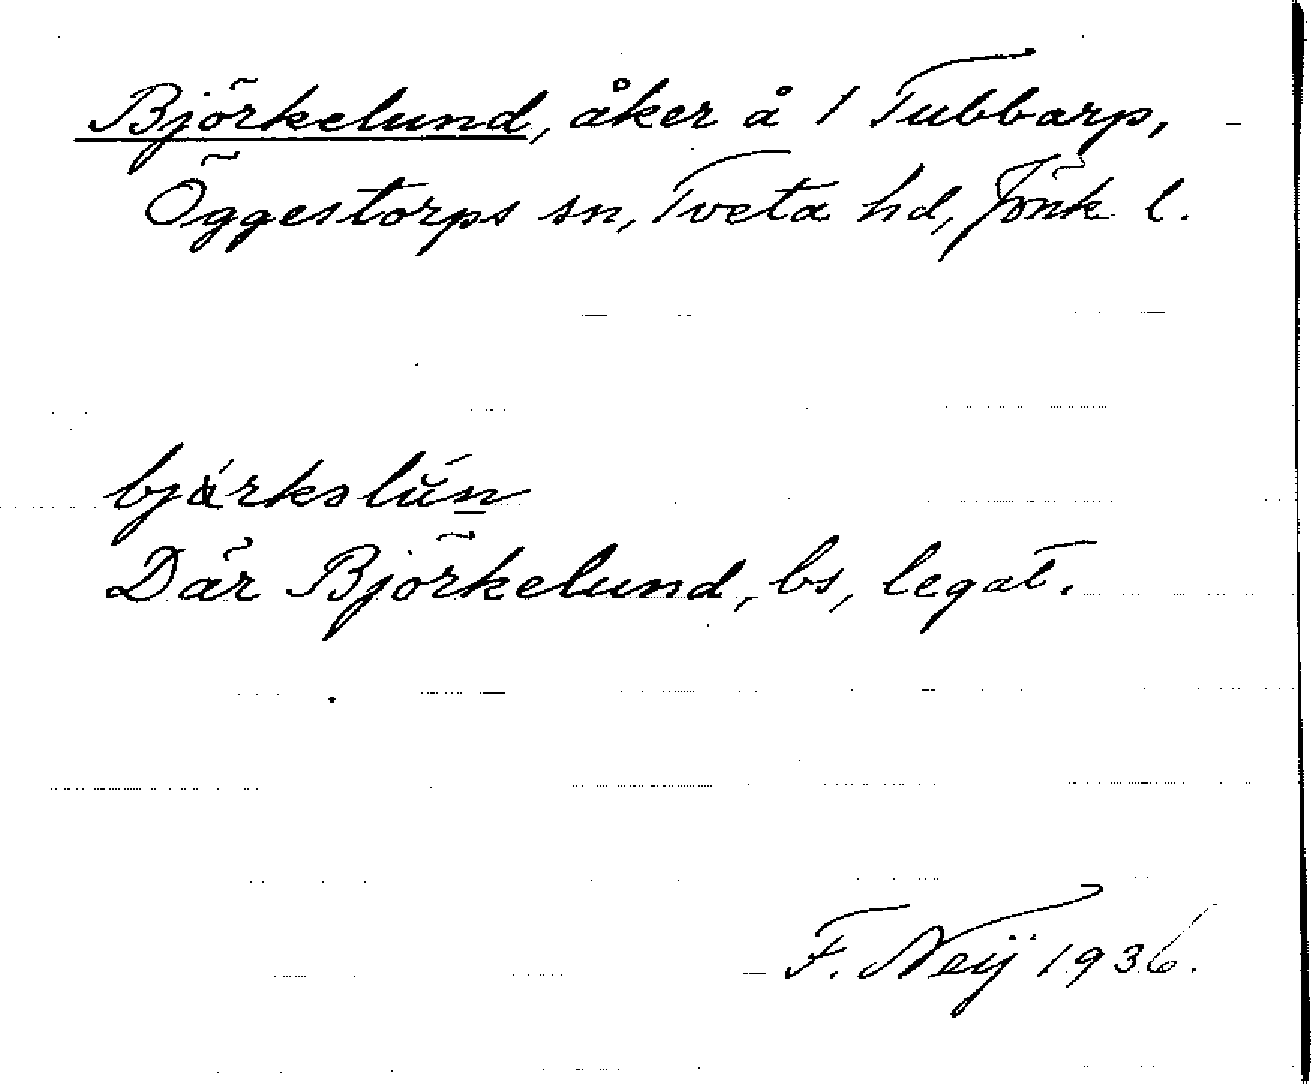 Björkelund, åker å 1 Tubbarp,
Öggestorps sn, Tveta hd, Jönk l.
bjärkslún
Där Björkelund, bs, legat.
F. Neÿ 1936.